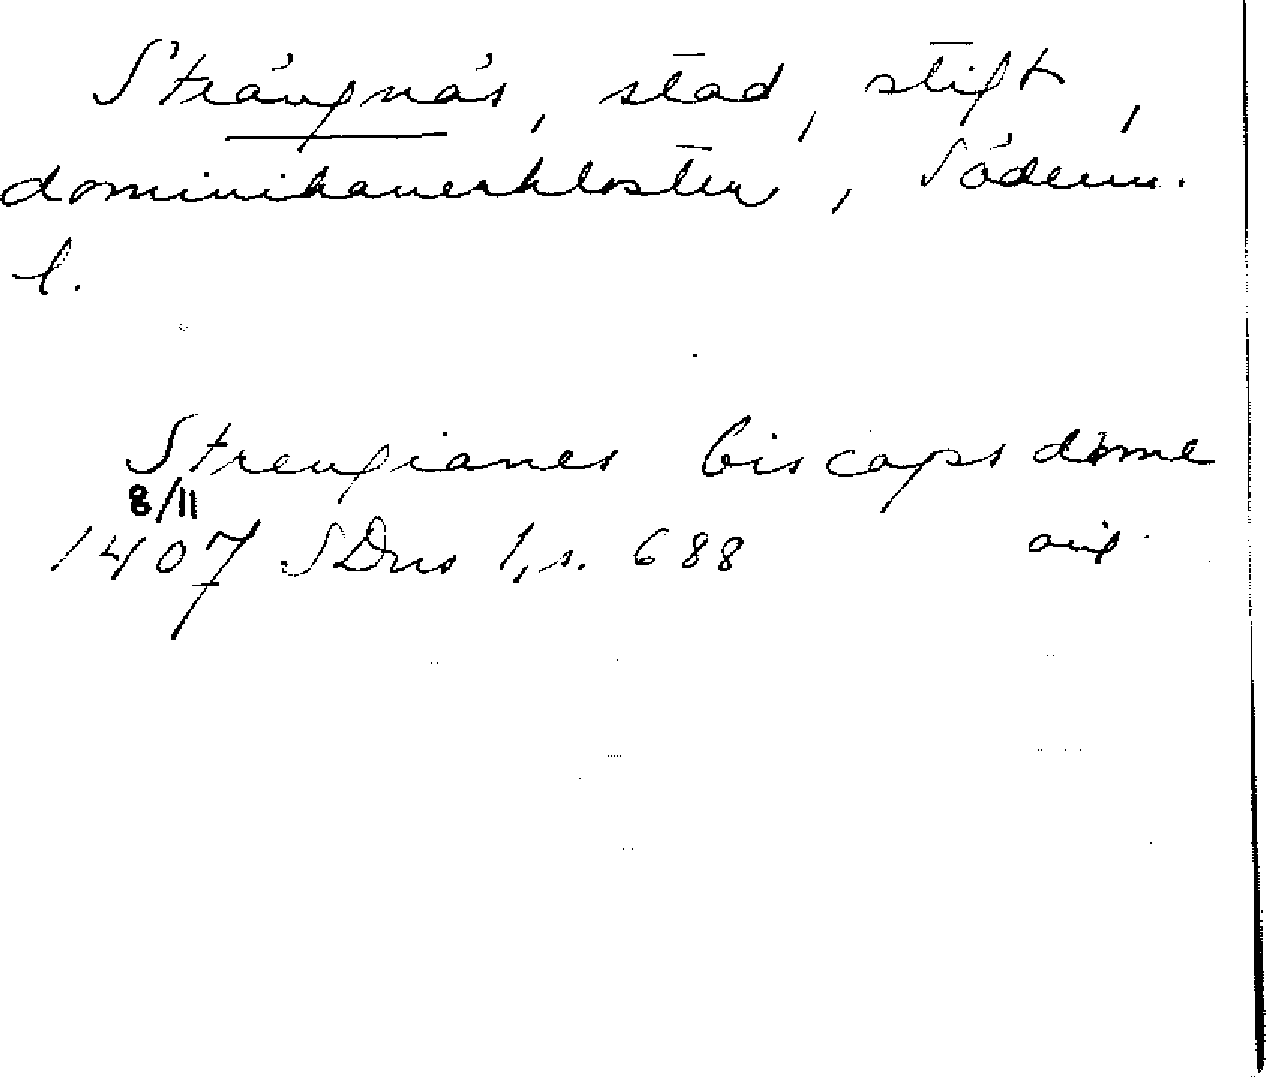 Strängnäs, stad, stift,
dominikanerkloster, Söderm.
l.
Strengianes biscops döme
8/11
1407 SDns 1, s. 688 orig.